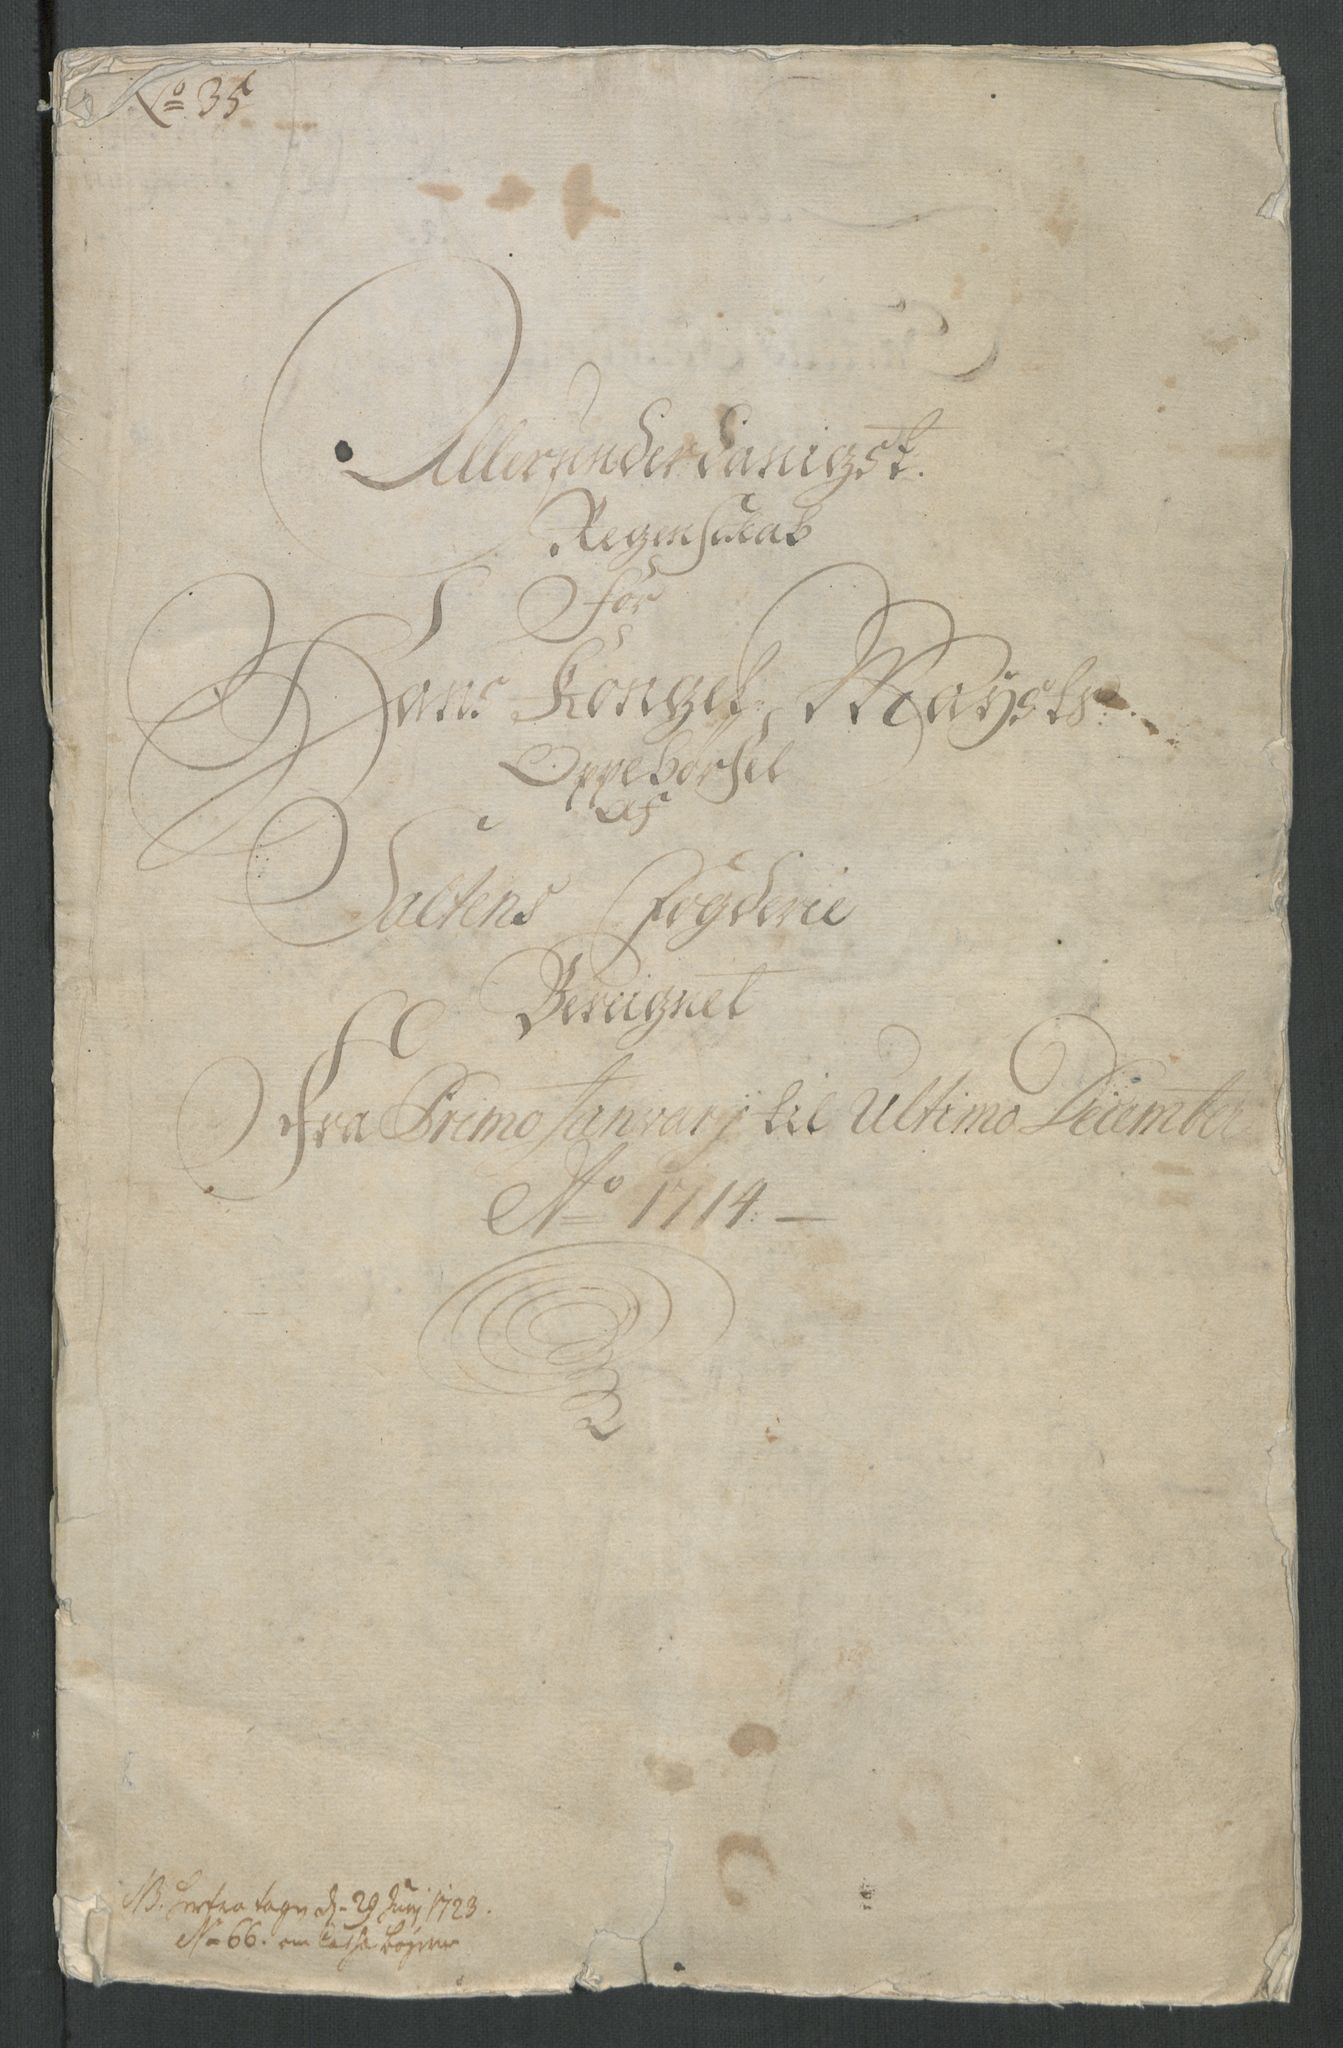 No 35
Allerunderdanigst.
Regenskab
for
Hans Kongel: Maysts:
Oppebørsel
Af
Saltens Fogderie
Bereignet
Fra Primo Januarij til Ultimo December
Ao 1714. —
NB. herfra tagen d. 29 Junij 1723.
No 66. om Cassa bøgerne